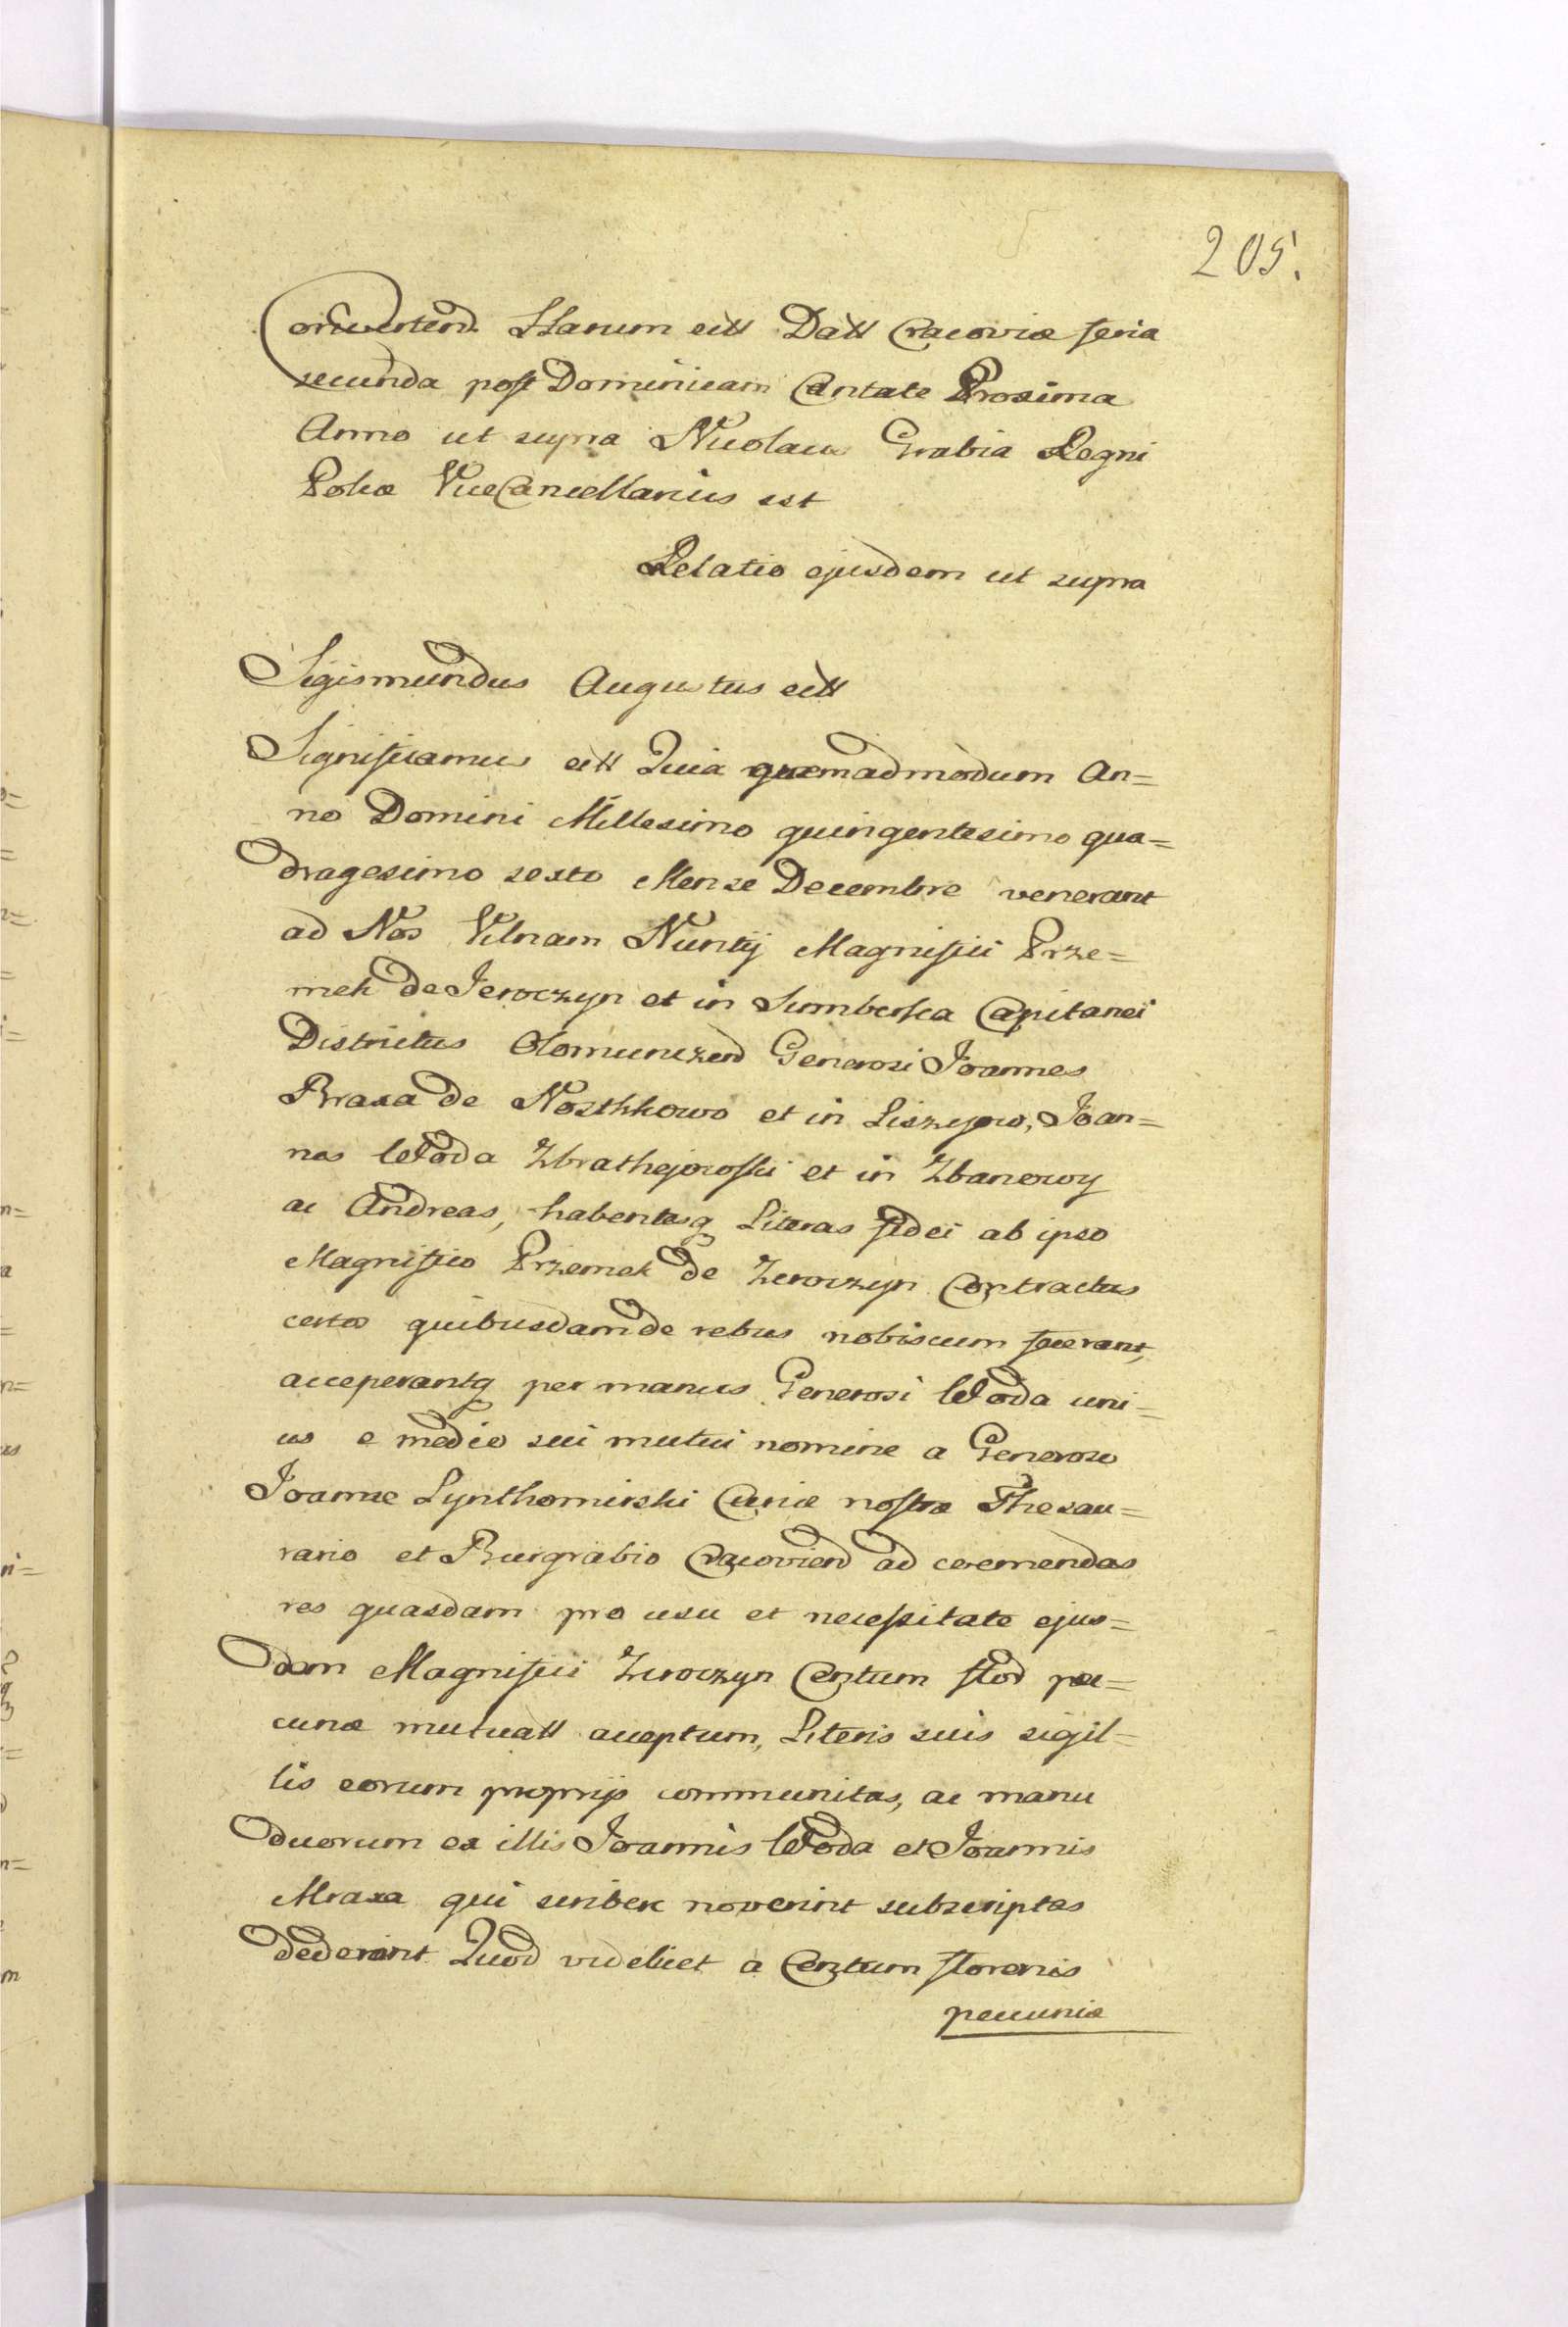 205.
Convertend. Harum ettt Dattt Cracoviæ feria
secunda post Dominicam Cantate Proxima
Anno ut supra Nicolaus Grabia Regni
Poliæ ViceCancellarius sst
Relatio ejusdem ut supra
Sigismundus Augustus ettt
Significamus ettt Quia quemadmodum An=
no Domini Millesimo quingentesimo qua=
dragesimo sexto Mense Decembre venerant
ad Nos Vilnam Nuntij Magnifici Prze=
mek de Jeroczyn et in Sumberka Capitanei
Districtus Olomuniczend Generosi Joannes
Braxa de Nosthkowo et in Liszejow, Joan=
nes Woda Zbrathejowski et in Zbanowy
ac Andreas, habentesq Literas fidei ab ipso
Magnifico Przemek de Zeroczyn Contractus
certos quibusdam de rebus nobiscum fecerant,
acceperantq per manus Generosi Woda uni=
us e medio sui mutui nomine a Generoso
Joanne Lynthomirski Curiæ nostræ Thesau=
rario et Burgrabio Cracoviend ad coemendas
res quasdam pro usu et necessitate ejus=
dem Magnifici Zeroczyn Centum flod pe=
cuniæ mutuattt acceptum, Literis suis sigil=
lis eorum proprijs communitas, ac manu
duorum ex illis Joannis Woda et Joannis
Mraxa qui scribere noverint subscriptas
dederant Quod videlicet a Centum florenis
pecuniæ